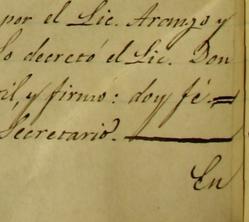 por el Lic. Aranzo y
lo decretó el Lic. Don
ril, y firmó: doy fé.=
Secretario.
En